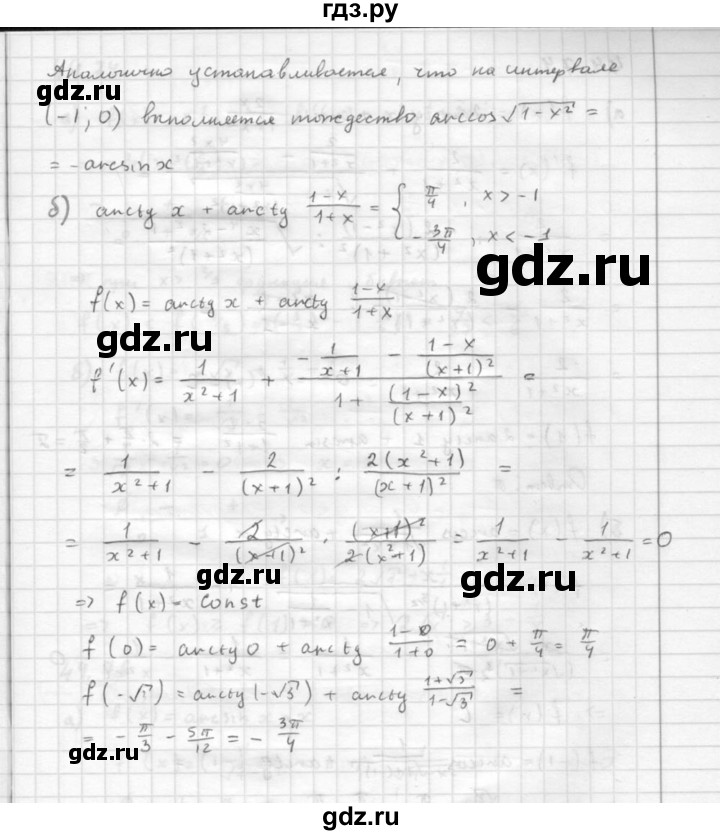 гдз.ру
Аналогично устанавливается, что на интервале
(-1; 0) выполняется тождество arccos √(1-x²) =
= -arcsin x
б) arctg x + arctg (1-x)/(1+x) = { π/4, x > -1
-3π/4, x < -1
gdz.ru
f(x) = arctg x + arctg (1-x)/(1+x)
gdz.ru
f'(x) = 1/(x²+1) + (-1/(x+1) - (1-x)/(x+1)²)/(1 + (1-x)²/(x+1)²) =
= 1/(x²+1) - 2/(x+1)² : 2(x²+1)/(x+1)² =
= 1/(x²+1) - 2/(x+1)² · (x+1)²/2(x²+1) = 1/(x²+1) - 1/(x²+1) = 0
gdz.ru
gdz.ru
=> f(x) = const
f(0) = arctg 0 + arctg (1-0)/(1+0) = 0 + π/4 = π/4
f(-√3) = arctg(-√3) + arctg (1+√3)/(1-√3) =
= -π/3 - 5π/12 = -3π/4
gdz.ru
gdz.ru